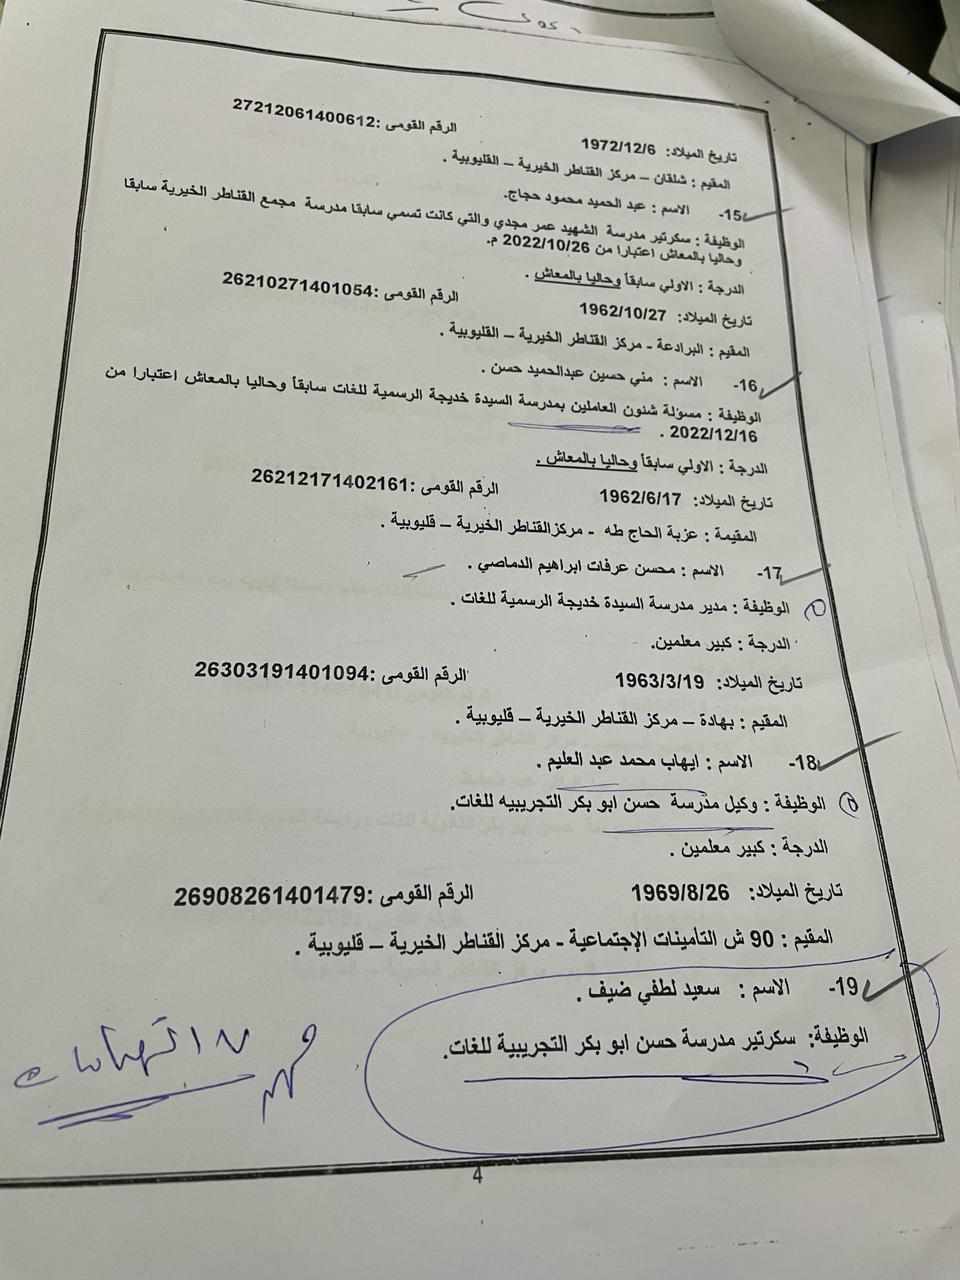 تاريخ الميلاد: 1972/12/6 الرقم القومى :27212061400612
المقيم : شلقان – مركز القناطر الخيرية – القليوبية .
15- الاسم : عبد الحميد محمود حجاج.
الوظيفة : سكرتير مدرسة الشهيد عمر مجدي والتي كانت تسمي سابقا مدرسة مجمع القناطر الخيرية سابقا
وحاليا بالمعاش اعتبارا من 2022/10/26 م.
الدرجة : الاولي سابقاً وحاليا بالمعاش .
تاريخ الميلاد: 1962/10/27 الرقم القومى :26210271401054
المقيم : البرادعة - مركز القناطر الخيرية – القليوبية .
16- الاسم : مني حسين عبدالحميد حسن .
الوظيفة : مسؤلة شئون العاملين بمدرسة السيدة خديجة الرسمية للغات سابقاً وحاليا بالمعاش اعتبارا من
2022/12/16 .
الدرجة : الاولي سابقاً وحاليا بالمعاش .
تاريخ الميلاد: 1962/6/17 الرقم القومى :26212171402161
المقيمة : عزبة الحاج طه - مركزالقناطر الخيرية – قليوبية .
17- الاسم : محسن عرفات ابراهيم الدماصي .
الوظيفة : مدير مدرسة السيدة خديجة الرسمية للغات .
الدرجة : كبير معلمين.
تاريخ الميلاد: 1963/3/19 الرقم القومى :26303191401094
المقيم : بهادة – مركز القناطر الخيرية – قليوبية .
18- الاسم : ايهاب محمد عبد العليم .
الوظيفة : وكيل مدرسة حسن ابو بكر التجريبيه للغات.
الدرجة : كبير معلمين .
تاريخ الميلاد: 1969/8/26 الرقم القومى :26908261401479
المقيم : 90 ش التأمينات الإجتماعية - مركز القناطر الخيرية – قليوبية .
19- الاسم : سعيد لطفي ضيف .
الوظيفة: سكرتير مدرسة حسن ابو بكر التجريبية للغات.
4